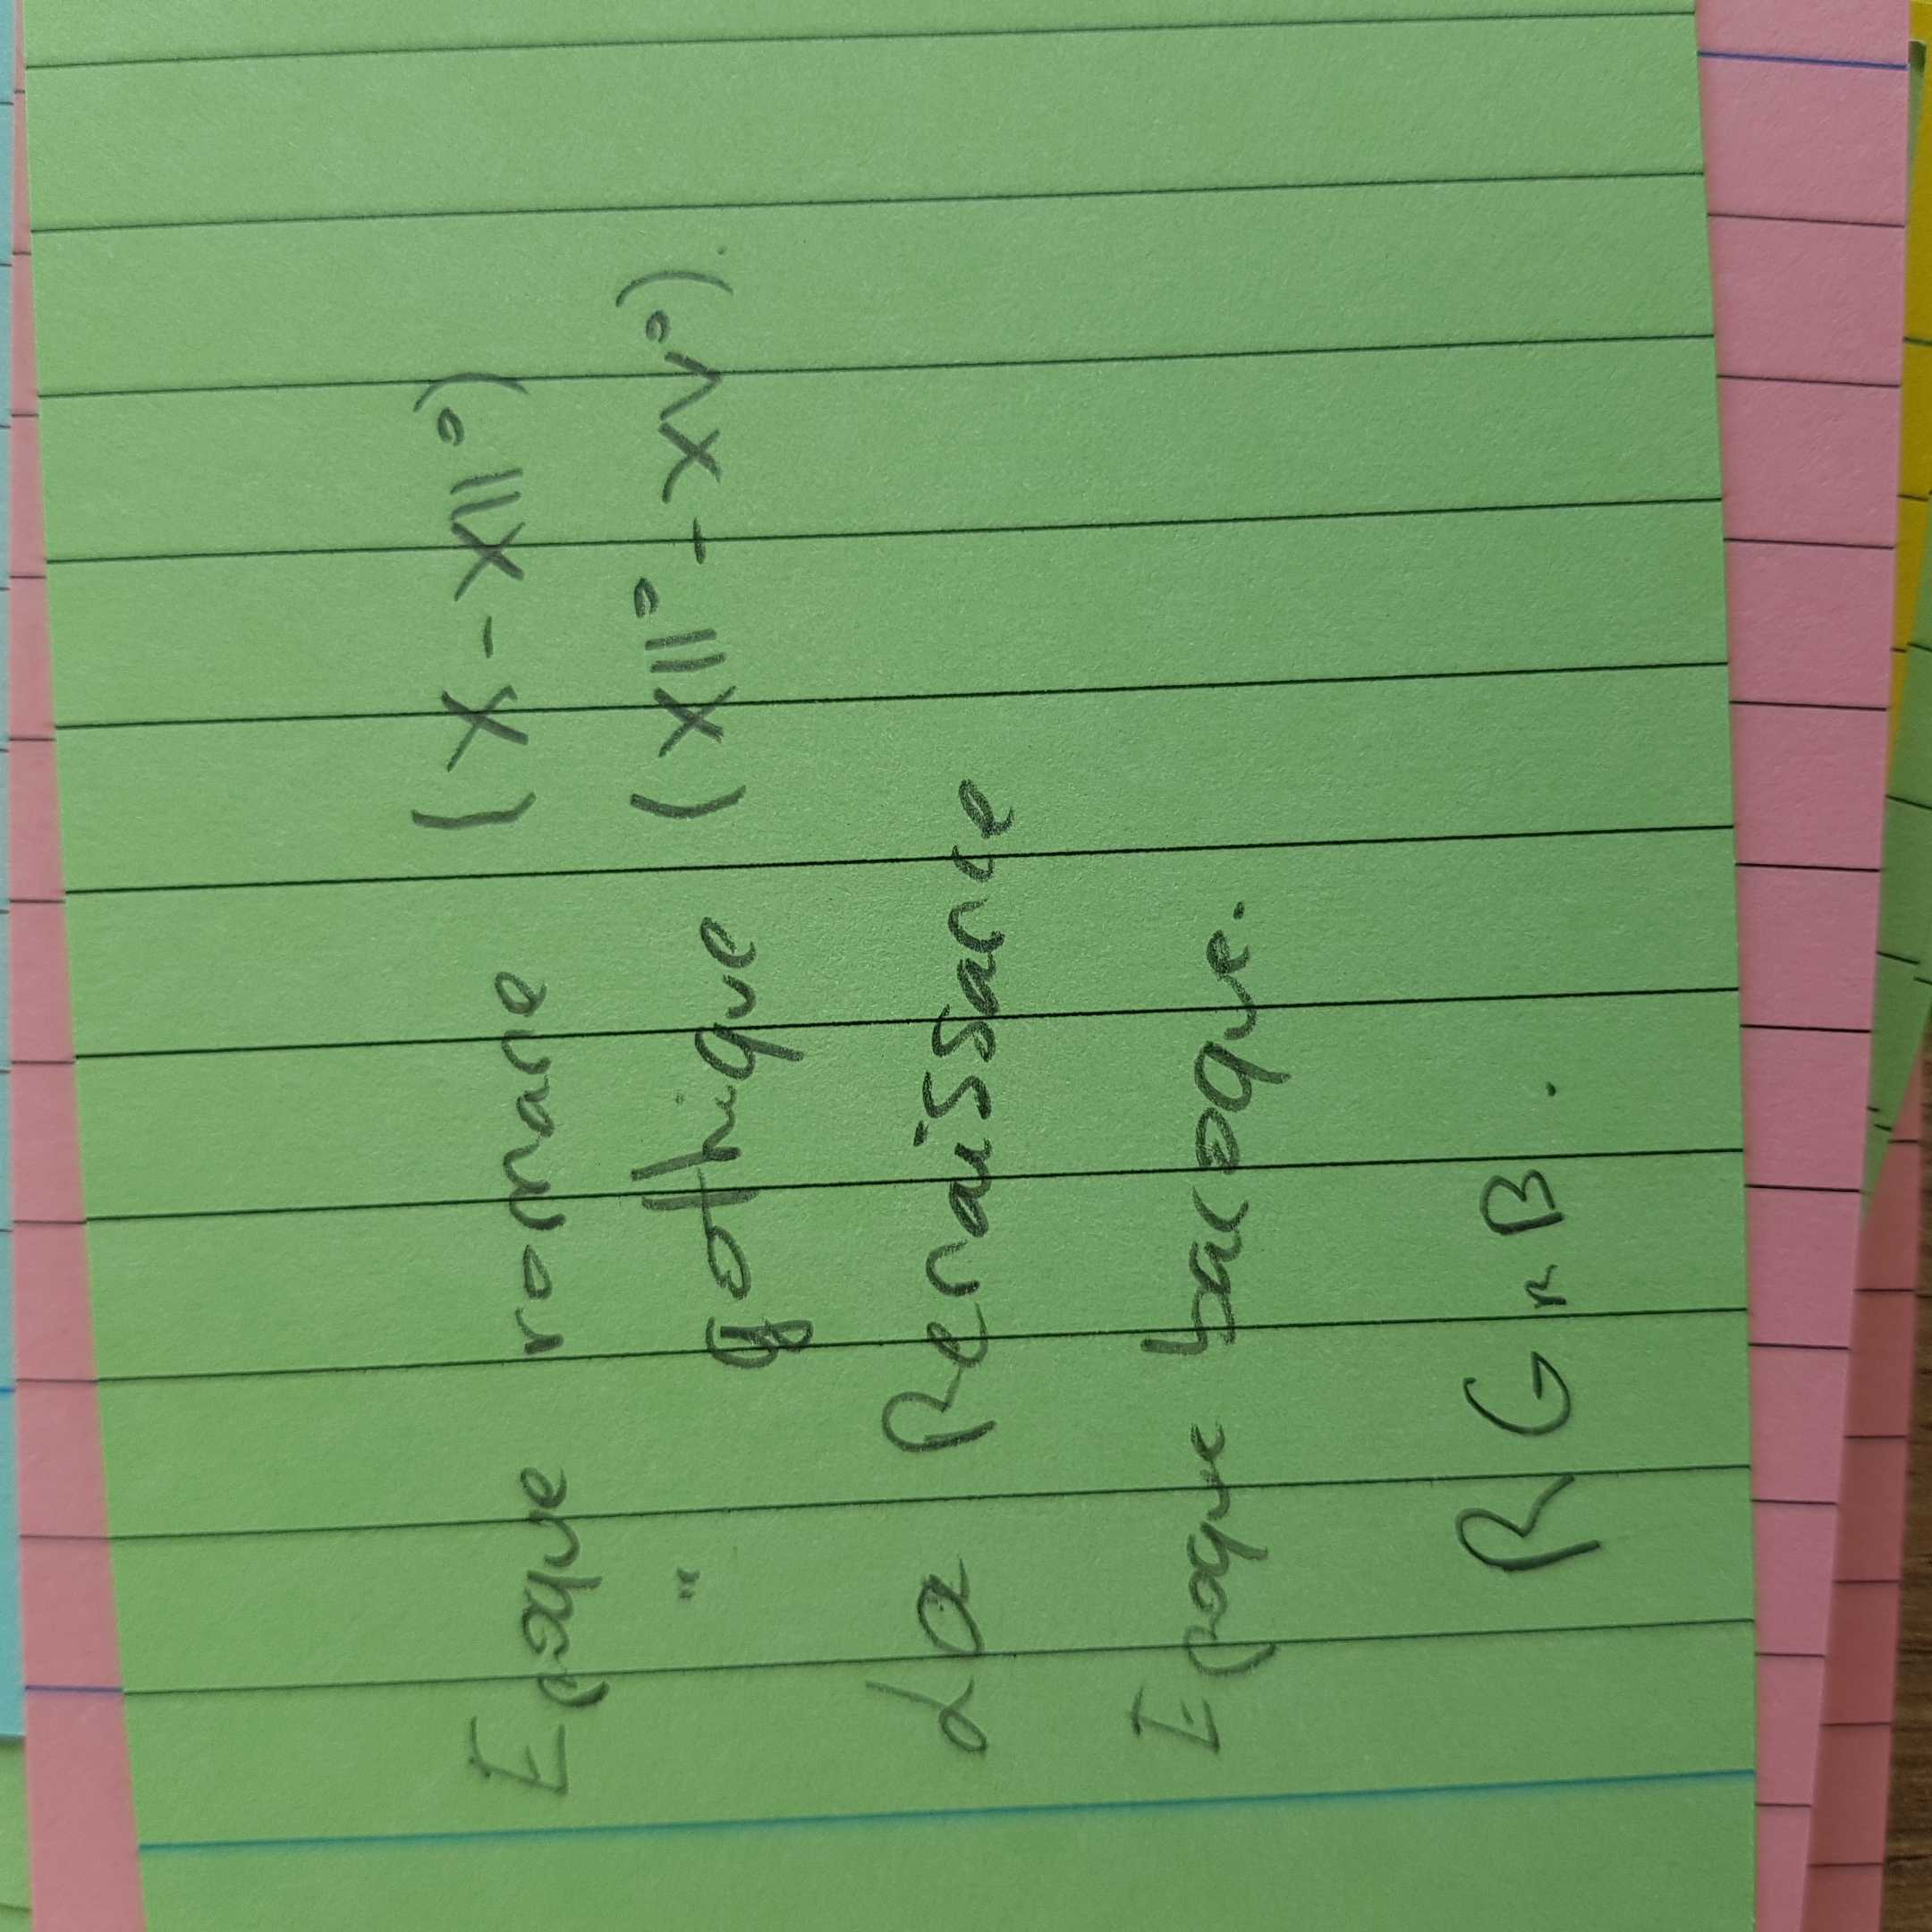 Epoque romane (X - XII°)
" gothique (XII° - XV°).
La Renaissance
Epoque baroque.
R G R B.